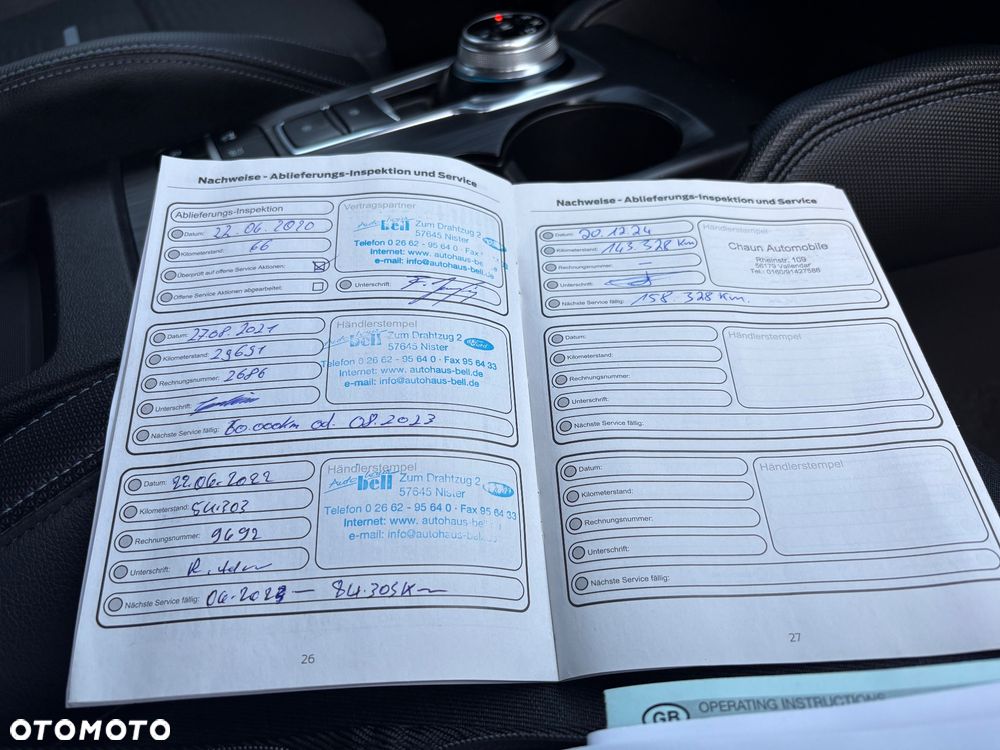 Nachweise - Ablieferungs-Inspektion und Service
Ablieferungs-Inspektion
Datum: 22.06.2020
Kilometerstand: 66
Überprüft auf offene Service Aktionen:
Offene Service Aktionen abgearbeitet:
Vertragspartner
bell Zum Drahtzug 2
57645 Nister
Telefon 0 26 62 - 95 64 0 · Fax
Internet: www. autohaus-be
e-mail: info@autohaus-bell.de
Unterschrift:
Datum: 27.08.2021
Kilometerstand: 29691
Rechnungsnummer: 2686
Unterschrift:
Nächste Service fällig: 60.000km od. 08.2023
Händlerstempel
bell Zum Drahtzug 2
57645 Nister
Telefon 0 26 62 - 95 64 0 · Fax 95 64 33
Internet: www. autohaus-bell.de
e-mail: info@autohaus-bell.de
Datum: 22.06.2022
Kilometerstand: 54.303
Rechnungsnummer: 9692
Unterschrift:
Nächste Service fällig: 06.2023 — 84.303Km
Händlerstempel
Auto bell Zum Drahtzug 2
57645 Nister
Telefon 0 26 62 - 95 64 0 · Fax 95 64 33
Internet: www. autohaus-bell
e-mail: info@autohaus-bell.de
26
Nachweise - Ablieferungs-Inspektion und Service
Datum: 20.12.24
Kilometerstand: 143 328 Km
Rechnungsnummer: —
Unterschrift:
Nächste Service fällig: 158.328 Km.
Händlerstempel
Chaun Automobile
Rheinstr. 109
56179 Vallendar
Tel.: 0160/91427586
Datum:
Kilometerstand:
Rechnungsnummer:
Unterschrift:
Nächste Service fällig:
Händlerstempel
Datum:
Kilometerstand:
Rechnungsnummer:
Unterschrift:
Nächste Service fällig:
Händlerstempel
27
GB OPERATING INSTRUCTIONS
OTOMOTO